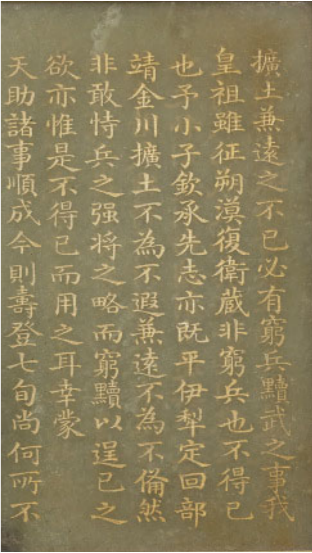 擴土兼遠之不已必有窮兵黷武之事我
皇祖雖征朔漠復衛藏非窮兵也不得已
也予小子欽承先志亦既平伊犁定回部
靖金川擴土不為不遐兼遠不為不僃然
非敢恃兵之强将之略而窮黷以逞已之
欲亦惟是不得已而用之耳幸蒙
天助諸事順成今則壽登七旬尚何所不